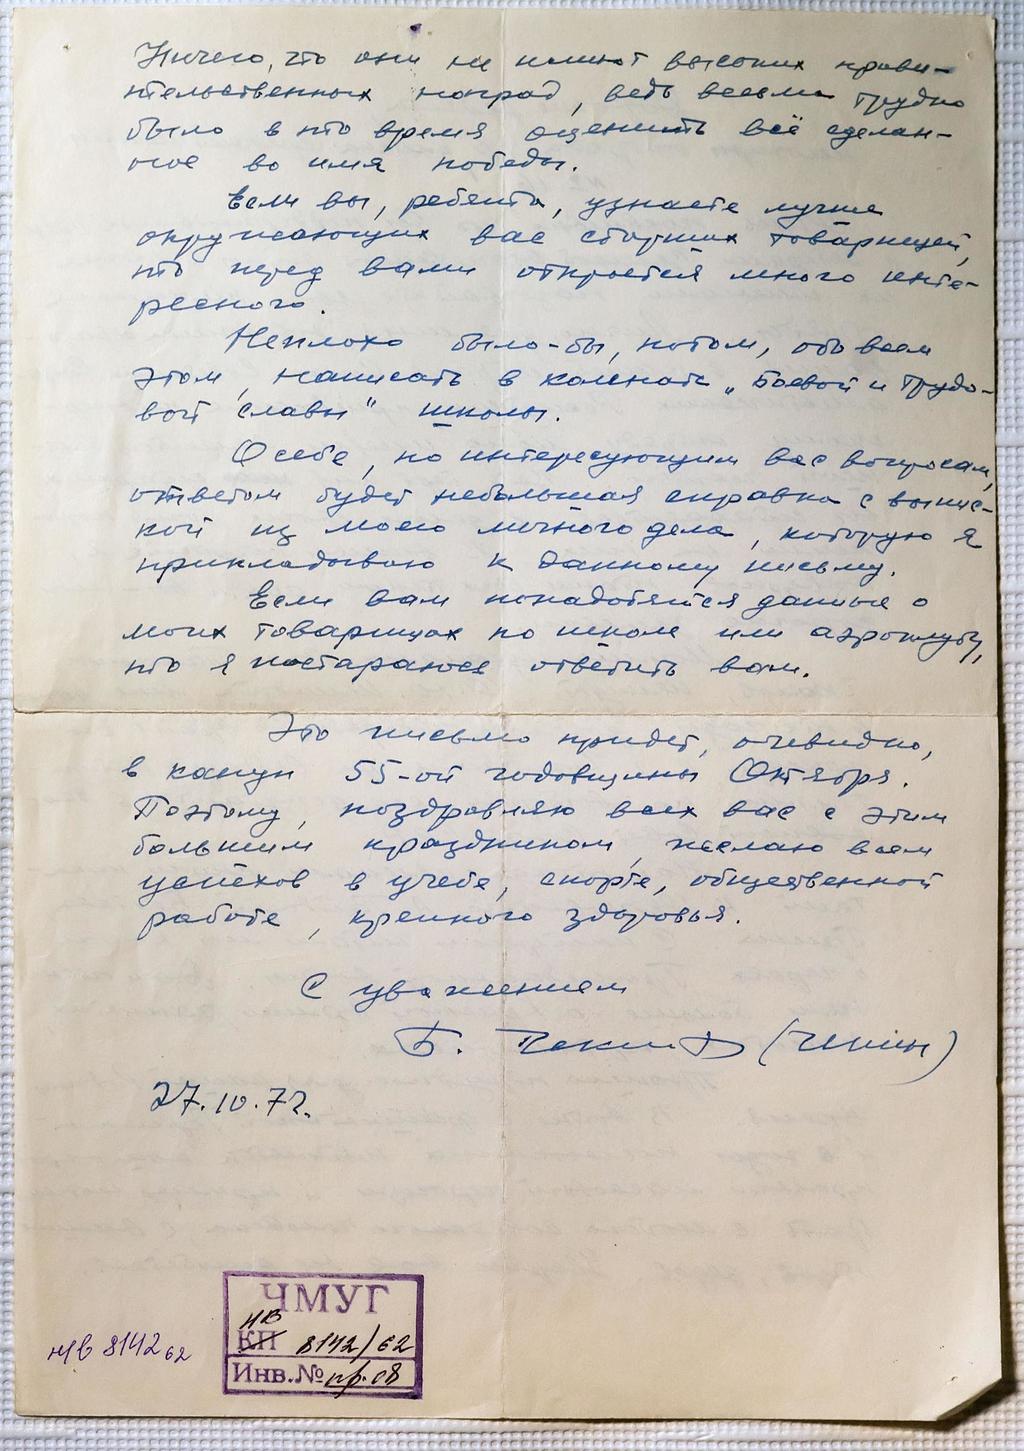 Ничего, что они не имеют высоких прави-
тельственных наград, ведь весьма трудно
было в то время оценить всё сделан-
ное во имя победы.
Если вы, ребята, узнаете лучше
окружающих вас старших товарищей,
то перед вами откроется много инте-
ресного.
Неплохо было-бы, потом, обо всем
этом, написать в комнате „Боевой и трудо-
вой славы" школы.
О себе, по интересующим вас вопросам,
ответом будет небольшая справка с выпис-
кой из моего личного дела, которую я
прикладываю к данному письму.
Если вам понадобятся данные о
моих товарищах по школе или аэроклубу,
то я постараюсь ответить вам.
Это письмо придет, очевидно,
в канун 55-ой годовщины Октября.
Поэтому, поздравляю всех вас с этим
большим праздником, желаю всем
успехов в учебе, спорте, общественной
работе, крепкого здоровья.
С уважением
Б.
27.10.72.
ЧМУГ
НВ
КП 8142/62
Инв.№ пр.08
НВ 8142 62